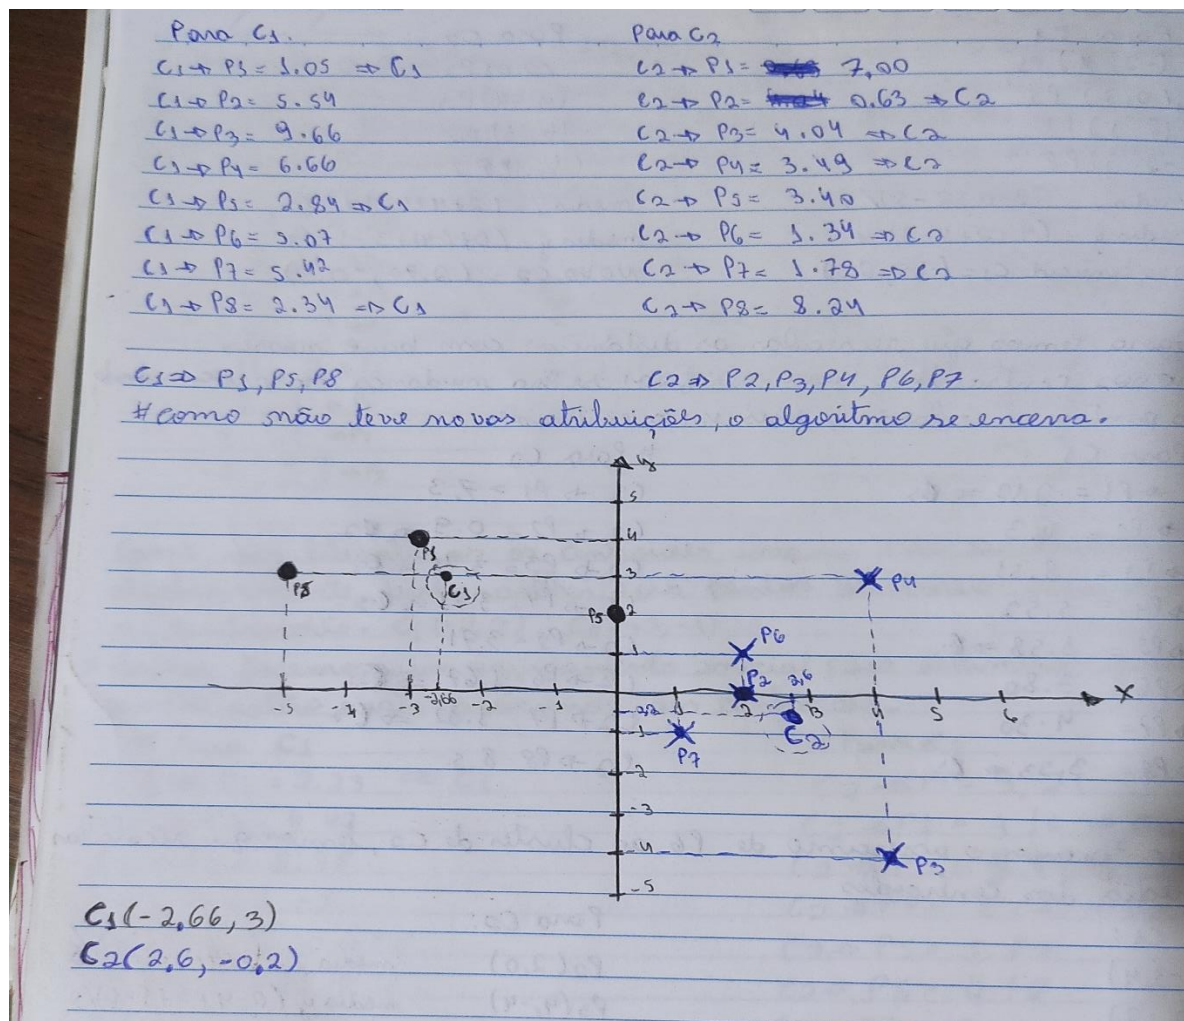 Para C1.
C1 → P1 = 1.05 ⇒ C1
C1 → P2 = 5.54
C1 → P3 = 9.66
C1 → P4 = 6.66
C1 → P5 = 2.84 ⇒ C1
C1 → P6 = 5.07
C1 → P7 = 5.42
C1 → P8 = 2.34 ⇒ C1
Para C2
C2 → P1 = 7,00
C2 → P2 = 0.63 ⇒ C2
C2 → P3 = 4.04 ⇒ C2
C2 → P4 = 3.49 ⇒ C2
C2 → P5 = 3.40
C2 → P6 = 1.34 ⇒ C2
C2 → P7 = 1.78 ⇒ C2
C2 → P8 = 8.24
C1 ⇒ P1, P5, P8
C2 ⇒ P2, P3, P4, P6, P7.
#como não teve novas atribuições, o algoritmo se encerra.
y
5
4
P1
P8
C1
3
P4
P5
2
1
P6
P2
2,6
-5
-4
-3
-2,66
-2
-1
1
2
3
4
5
6
X
C2
-1
P7
-2
-3
-4
P3
-5
C1(-2,66, 3)
C2(2,6, -0,2)